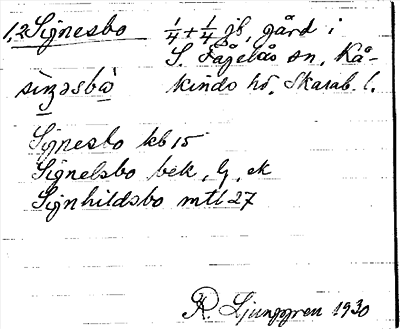 1,2 Signesbo 1/4 + 1/4 gb, gård i
S. Fågelås sn, Kå-
kinds hd, Skarab. l.
Signesbo kb 15
Signelsbo bek, G, ek
Signhildsbo mtl 27
R. Ljunggren 1930